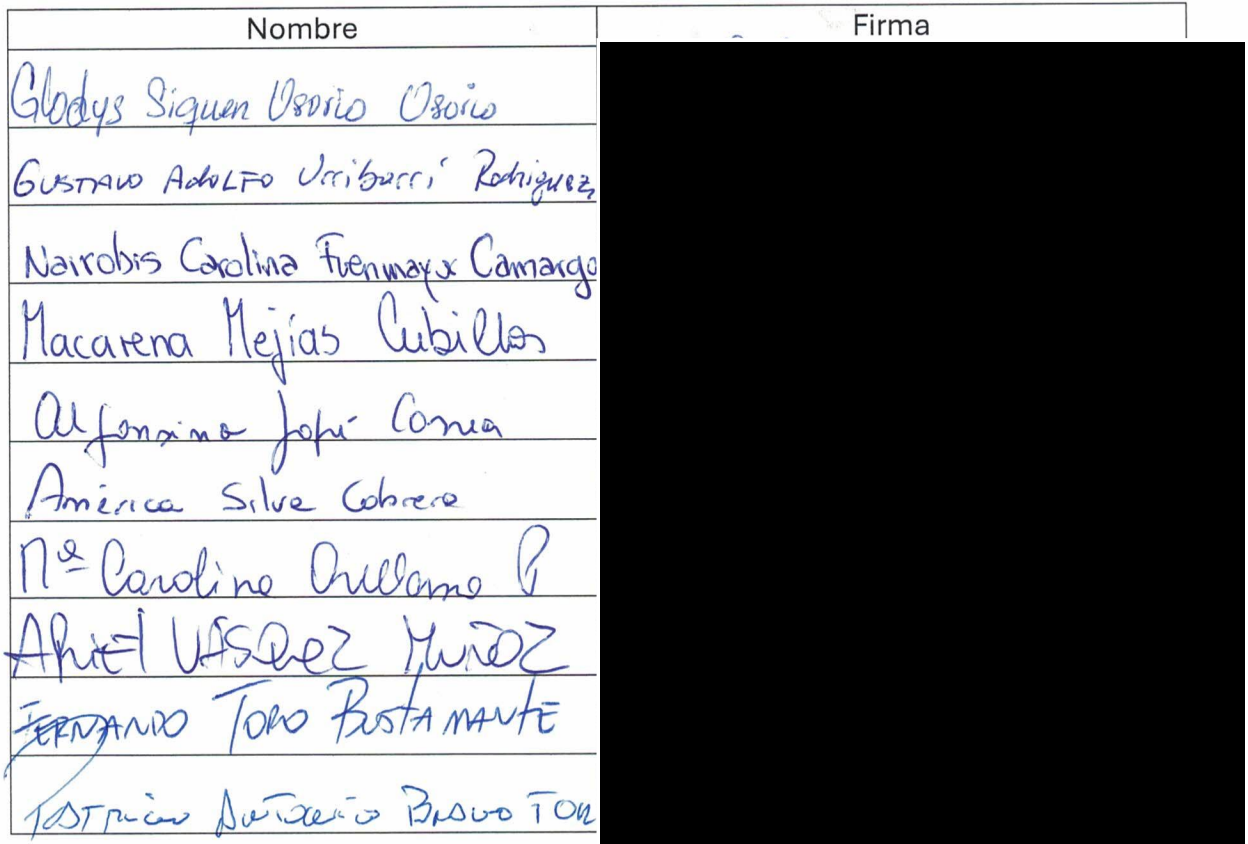 Nombre Firma
Gladys Siquen Osorio Osorio
GUSTAVO ADOLFO Urribarrí Rodriguez
Nairobis Carolina Fuenmayor Camargo
Macarena Mejías Cubillos
Alfonsina Jofré Correa
América Silva Cabrera
Mª Carolina Orellana P
ARIEL VÁSQUEZ MUÑOZ
FERNANDO TORO BUSTAMANTE
PATRICIO ANTONIO BRAVO TOR